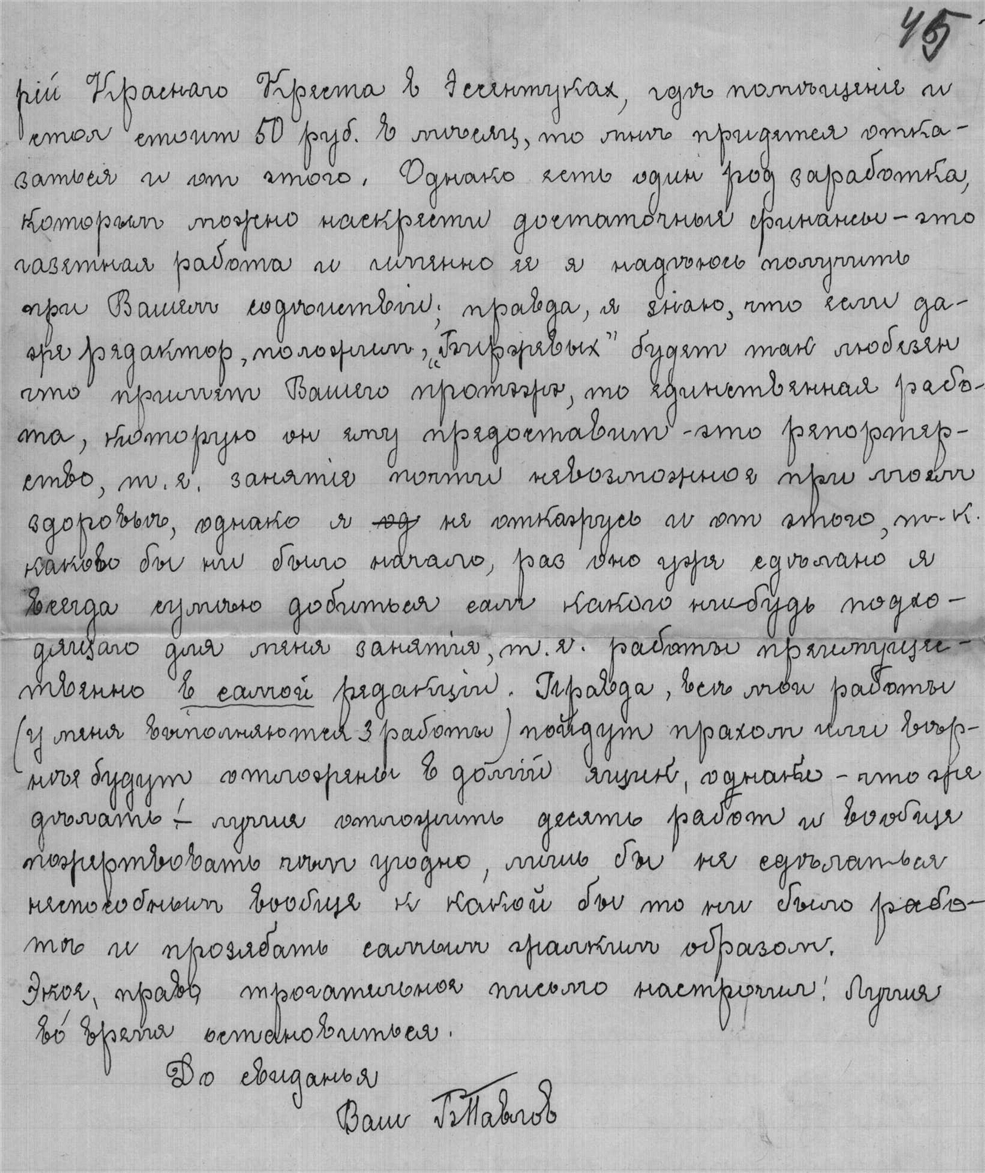 45
рій Краснаго Креста в Эссентуках, гдѣ помѣщеніе и
стол стоит 50 руб. в мѣсяц, то мнѣ придется отка-
заться и от этого. Однако есть один род заработка,
которым можно наскрести достаточные финансы – это
газетная работа и именно ее я надѣюсь получить
при Вашем содѣйствіи; правда, я знаю, что если да-
же редактор, положим, „Биржевых" будет так любезен
что примет Вашего протэжэ, то единственная рабо-
та, которую он ему предоставит – это репортер-
ство, т.е. занятіе почти невозможное при моем
здоровьи, однако я од не откажусь и от этого, т.к.
каково бы ни было начало, раз оно уже сдѣлано я
всегда сумѣю добиться сам какого нибудь подхо-
дящаго для меня занятія, т.е. работы преимущес-
твенно в самой редакціи. Правда, всѣ мои работы
(у меня выполняются 3 работы) пойдут прахом или вѣр-
нѣе будут отложены в долгій ящик, однако – что же
дѣлать! – лучше отложить десять работ и вообще
пожертвовать чѣм угодно, лишь бы не сдѣлаться
неспособным вообще к какой бы то ни было рабо-
тѣ и прозябать самым жалким образом.
Экое, право, трогательное письмо настрочил! Лучше
во время остановиться.
До свиданья
Ваш БПавлов